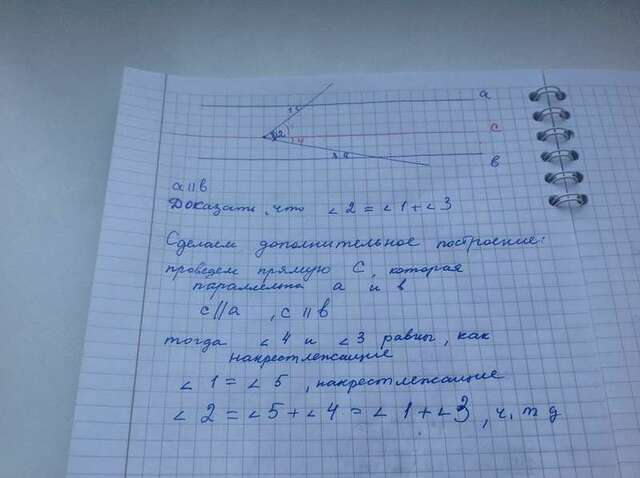 a
c
в
a || в
Доказать, что ∠2 = ∠1 + ∠3
Сделаем дополнительное построение:
проведем прямую C, которая
параллельна a и в
c || a , c || в
тогда ∠4 и ∠3 равны, как
накрестлежащие
∠1 = ∠5 , накрестлежащие
∠2 = ∠5 + ∠4 = ∠1 + ∠3 , ч, т д